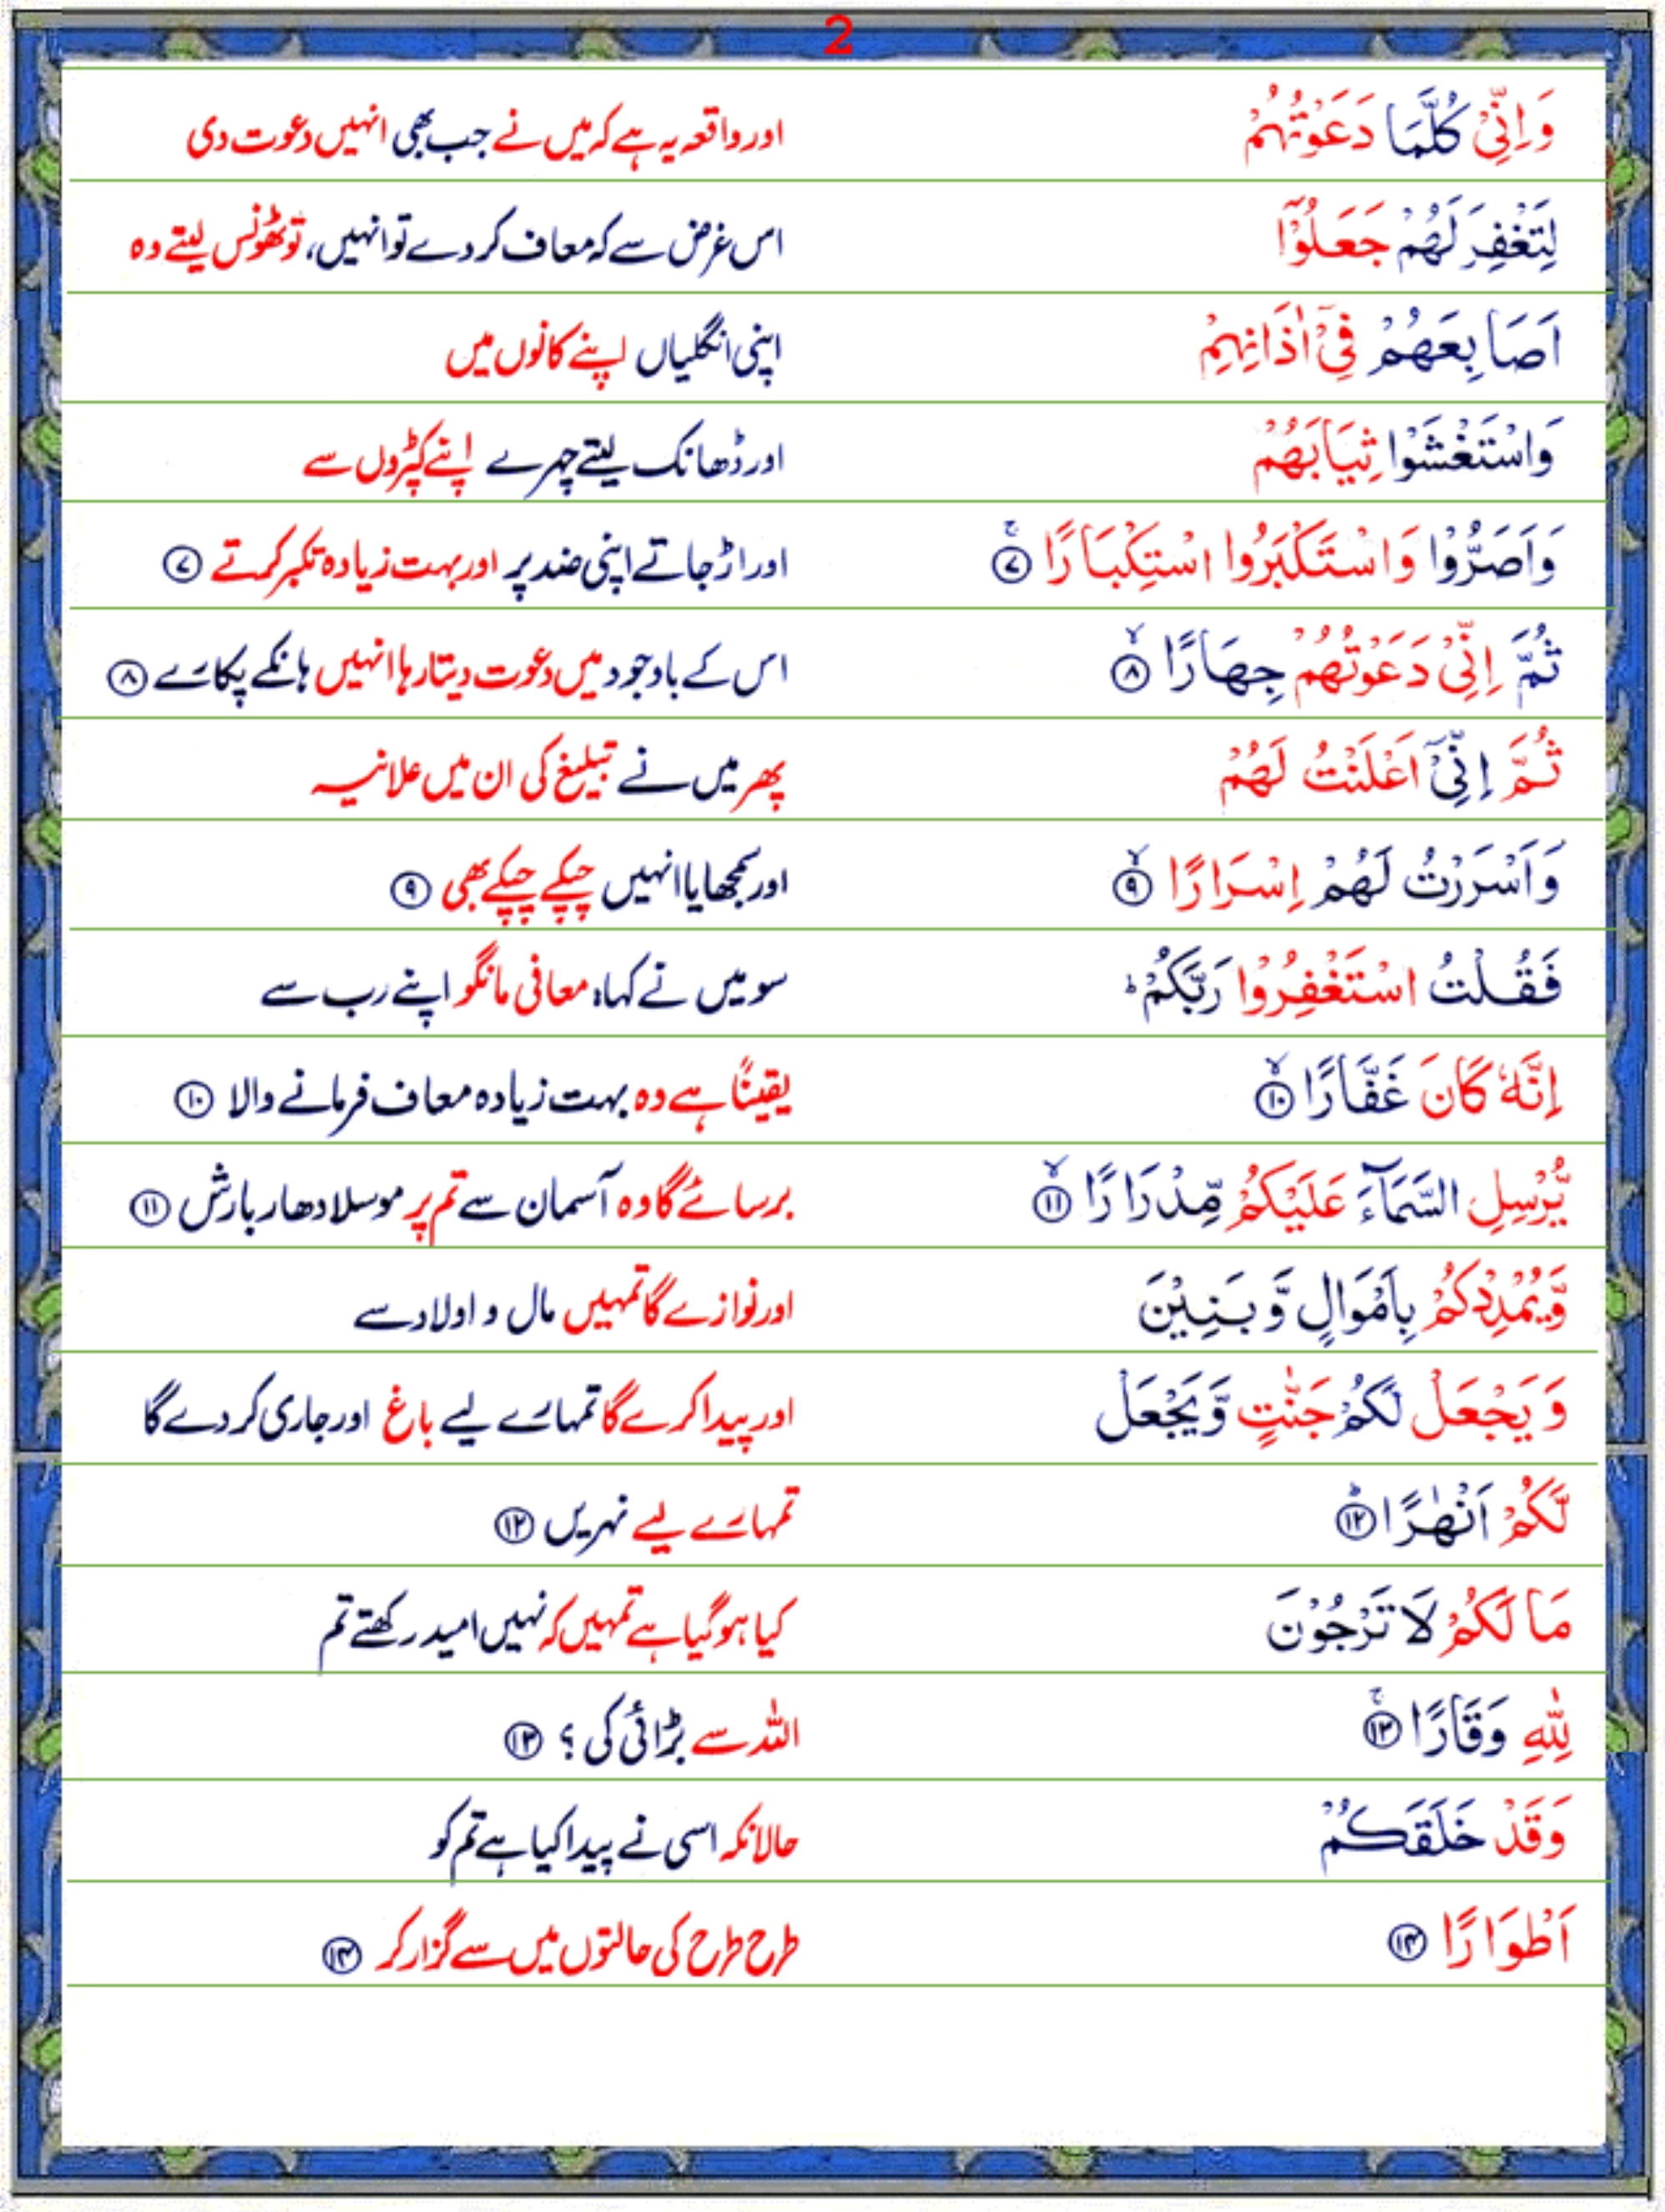 2
وَاِنِّیْ كُلَّمَا دَعَوْتُهُمْ اور واقعہ یہ ہے کہ میں نے جب بھی انہیں دعوت دی
لِتَغْفِرَ لَهُمْ جَعَلُوْۤا اس غرض سے کہ معاف کر دے تو انہیں، تو ٹھونس لیتے وہ
اَصَابِعَهُمْ فِیْۤ اٰذَانِهِمْ اپنی انگلیاں اپنے کانوں میں
وَاسْتَغْشَوْا ثِیَابَهُمْ اور ڈھانک لیتے چہرے اپنے کپڑوں سے
وَاَصَرُّوْا وَاسْتَكْبَرُوا اسْتِكْبَارًا ۚ ۷ اور اڑ جاتے اپنی ضد پر اور بہت زیادہ تکبر کرتے ۷
ثُمَّ اِنِّیْ دَعَوْتُهُمْ جِهَارًا ۙ ۸ اس کے باوجود میں دعوت دیتا رہا انہیں ہانکے پکارے ۸
ثُمَّ اِنِّیْۤ اَعْلَنْتُ لَهُمْ پھر میں نے تبلیغ کی ان میں علانیہ
وَاَسْرَرْتُ لَهُمْ اِسْرَارًا ۙ ۹ اور سمجھایا انہیں چپکے چپکے بھی ۹
فَقُلْتُ اسْتَغْفِرُوْا رَبَّكُمْ ؕ سو میں نے کہا، معافی مانگو اپنے رب سے
اِنَّهٗ كَانَ غَفَّارًا ۙ ۱۰ یقیناً ہے وہ بہت زیادہ معاف فرمانے والا ۱۰
یُّرْسِلِ السَّمَآءَ عَلَیْكُمْ مِّدْرَارًا ۙ ۱۱ برسائے گا وہ آسمان سے تم پر موسلا دھار بارش ۱۱
وَّیُمْدِدْكُمْ بِاَمْوَالٍ وَّبَنِیْنَ اور نوازے گا تمہیں مال و اولاد سے
وَیَجْعَلْ لَّكُمْ جَنّٰتٍ وَّیَجْعَلْ اور پیدا کرے گا تمہارے لیے باغ اور جاری کر دے گا
لَّكُمْ اَنْهٰرًا ؕ ۱۲ تمہارے لیے نہریں ۱۲
مَا لَكُمْ لَا تَرْجُوْنَ کیا ہو گیا ہے تمہیں کہ نہیں امید رکھتے تم
لِلّٰهِ وَقَارًا ۚ ۱۳ اللہ سے بڑائی کی ؟ ۱۳
وَقَدْ خَلَقَكُمْ حالانکہ اسی نے پیدا کیا ہے تم کو
اَطْوَارًا ۱۴ طرح طرح کی حالتوں میں سے گزار کر ۱۴